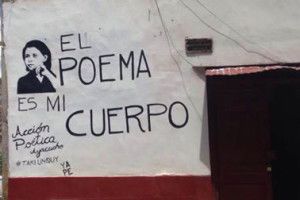 EL
POEMA
ES MI
CUERPO
Acción
Poética
Ayacucho
#TAKIUNQUY
YA
PE